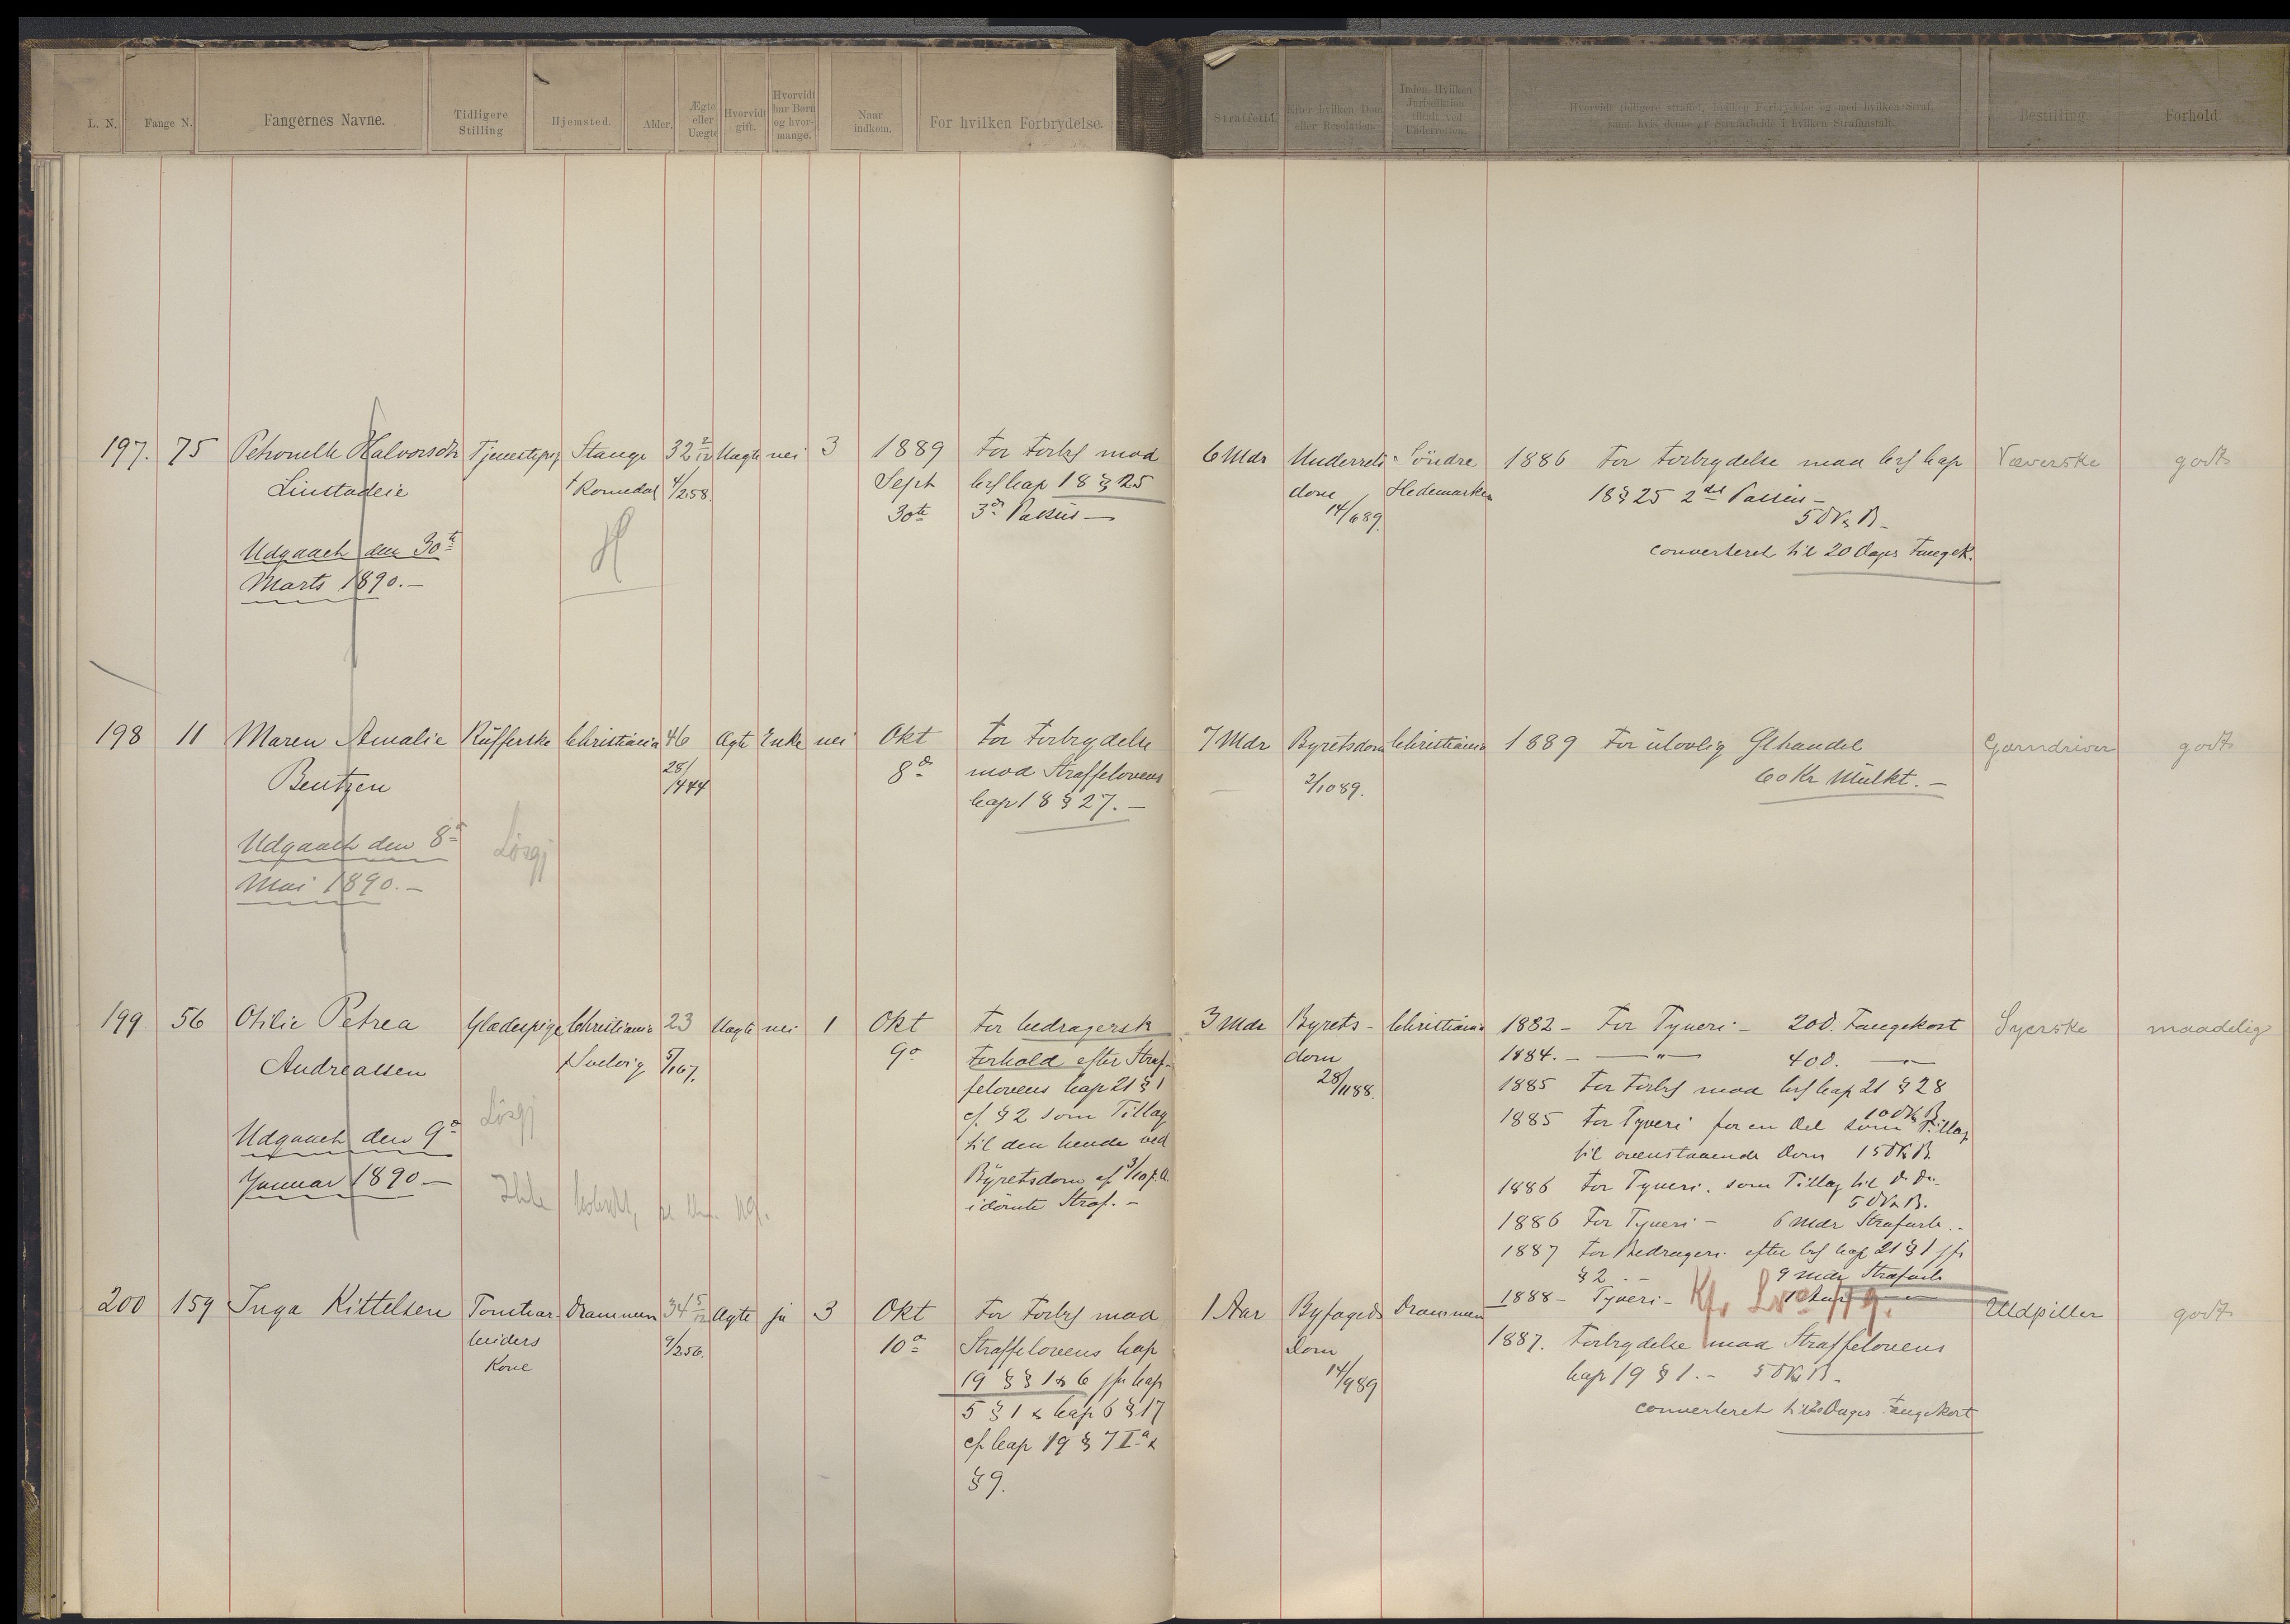 L. N.
Fange N.
Fangernes Navne.
Tidligere
Stilling
Hjemsted.
Alder.
Ægte
eller
Uægte
Hvorvidt
gift.
Hvorvidt
har Børn
og hvor-
mange.
Naar
indkom.
For hvilken Forbrydelse.
Straffetid.
Efter hvilken Dom
eller Resolution.
Inden Hvilken
Jurisdiktion
tiltalt ved
Underretten.
Hvorvidt tidligere straffet, hvilken Forbrydelse og med hvilken Straf,
samt hvis denne er Strafarbeide i hvilken Strafanstalt.
Bestilling
Forhold
197. 75 Petronelle Halvorsdtr Tjenestepig Stange 32 2/12 Uægte nei 3 1889 For Forbr mod 6 Mdr Underrets- Söndre 1886 For Forbrydelse mod Crl Cap Væverske godt
Linstadeie
Romedal 4/2 58.
Sept Crl Cap 18 § 25
dom Hedemarken
18 § 25 2det Passus
30te 3die Passus —
14/6 89.
5 Kr B.
Udgaaet den 30te
Marts 1890.—
H
converteret til 20 Dages Fangek.
198 11 Maren Amalie Rufferske Christiania 46 Ægte Enke nei Okt For Forbrydelse 7 Mdr Byretsdom Christiania 1889 For ulovlig Ølhandel Garndriver godt
Bentzen
28/1 44
8de mod Straffelovens
2/10 89.
60 Kr Mulkt.—
Cap 18 § 27.—
Udgaaet den 8de
Mai 1890.—
Løsgj
199 56 Otilie Petrea Glædespige Christiania 23 Uægte nei 1 Okt For bedragersk 3 Mdr Byrets- Christiania 1882 — For Tyveri — 20 D. Fangekost Syerske maadelig
Andreassen
Svelvig 5/1 67.
9de Forhold efter Straf-
dom
1884. — " — 40 D. —
felovens Cap 21 § 1
28/11 88.
1885 For Forbr mod Crl Cap 21 § 28
cf. § 2 som Tillæg
1885 For Tyveri for en Del som Tillæg
Udgaaet den 9de
Januar 1890 —
Løsgj
til den hende ved
til ovenstaaende Dom 15 D V&B.
Byretsdom af 3/10 f. A.
1886 For Tyveri. som Tillæg til
idömte Straf. —
1886 For Tyveri — 6 Mdr Strafarb.—
1887 For Bedrageri efter Crl Cap 21 § 1 jfr
§ 2 — 9 Mdr Strafarb
1888 — Tyveri — 1 Aar —
Kfr L No 119.
200 159 Inga Kittelsen Tomtear- Drammen 34 5/12 Ægte ja 3 Okt For Forbr mod 1 Aar Byfogeds Drammen Uldpiller godt
beiders
9/2 56.
10de Straffelovens Cap
Dom
1887. Forbrydelse mod Straffelovens
Kone
19 §§ 1 & 6 jfr Cap
14/9 89
Cap 19 § 1.—
5 § 1 & Cap 6 § 17
converteret til Dages Fangekost
cf Cap 19 § 7 I a &
§ 9.